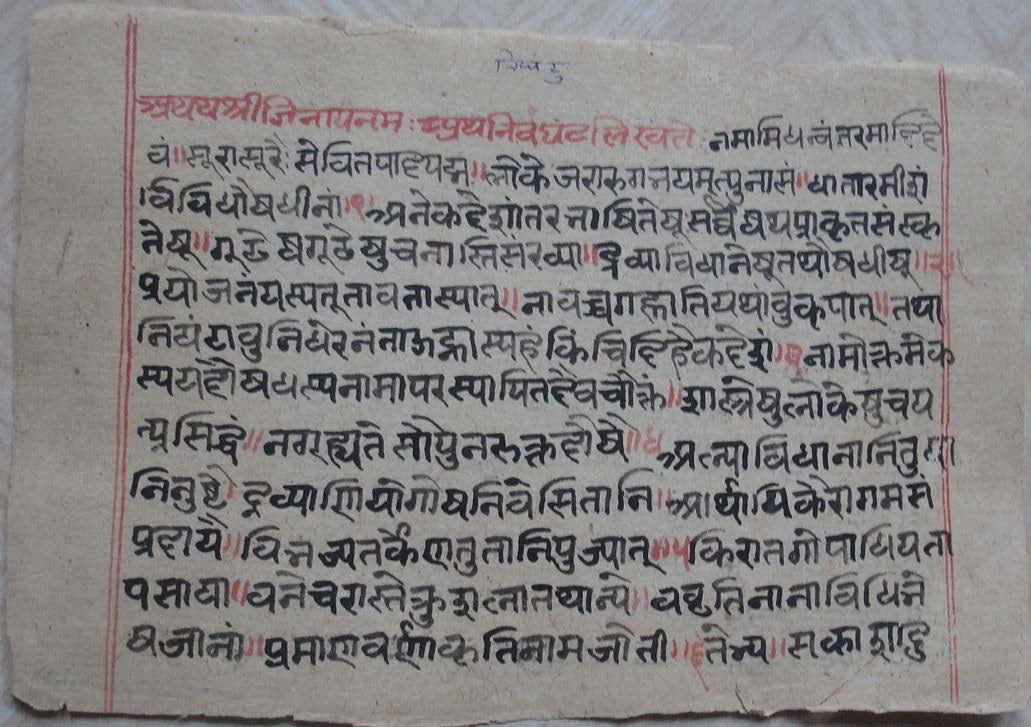 निघंटु
अथय श्रीजिनायनमः अथनिवघंटलिखते नमामिधन्वंतरमादिदे
वं॥सूरासूरैः सेवितपादपद्म॥लोके जरारुगजयमृत्पुनासं॥धातारमीशं
र्विविधौषधीनां॥१॥अनेकदेशांतरभाषितेषूसर्वेषयप्राकृतसंस्कृ
तेषू॥गूढेष्वगूढेषुचनास्तिसरव्या॥द्रिव्याविधानेषूतथौषधीषू॥२॥
प्रयोजनंयस्पतूतावतास्पात्॥नावच्चगह्नातियथांवुकृपात्॥तथा
निघंटावुनिधेरनंताऊह्नास्पहंकिंचिद्दिहैकदेशं॥३नामोक्तमेक
स्पयदौषधस्पनामापरस्पापितदेवचोक्तं॥शास्त्रेषुलोकेषुचय
त्प्रसिद्धं॥नगृह्यतेसोपुनरुक्तदोषै॥४अल्पाविधानानितु
नितुष्टै द्रव्याणियोगोषनिवेसितानि॥आर्थाधिकैरागमसं
प्रदायै॥विभज्यतर्केणतुतानिपुज्पात्॥५किरातगोपाधिपता
पसाद्या॥वनेचरास्तेकुशलातथान्ये॥वघुतिनानाविधिभे
षजानां॥प्रमाणवर्णाकृतिनामजाती॥६तेभ्य॥सकाशादु